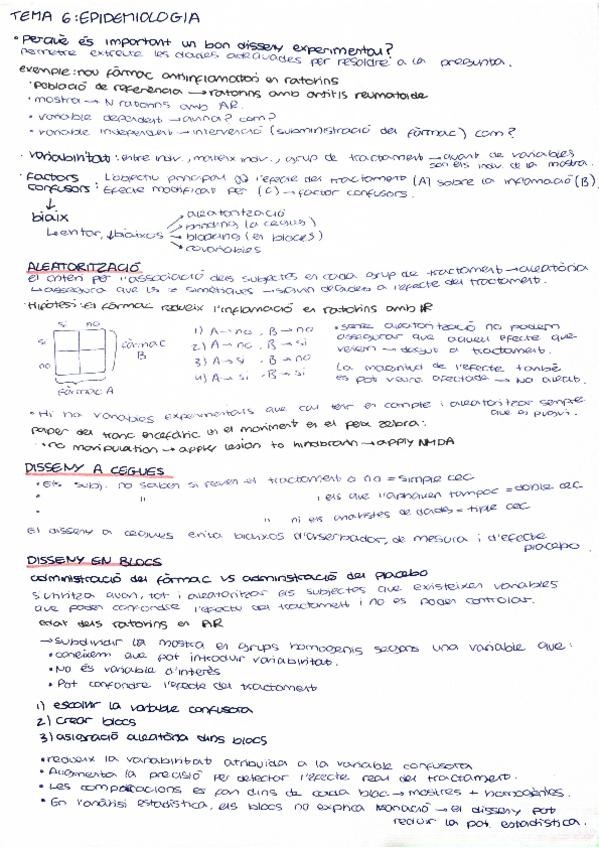 TEMA 6: EPIDEMIOLOGIA
• Perquè és important un bon disseny experimental?
permetre extreure les dades adequades per resoldre a la pregunta.
exemple: nou fàrmac antiinflamatori en ratolins
• Població de referència → ratolins amb artritis reumatoide
• mostra → N ratolins amb AR.
• variable dependent → quina? com?
• variable independent → intervenció (subministració del fàrmac) com?
• variabilitat: entre indv., mateix indv., grup de tractament → quant de variables
són els indv. de la mostra.
• factors confusors: L'objectiu principal és l'efecte del tractament (A) sobre la inflamació (B)
Efecte modificat per (C) → factor confusors.
↓
biaix → aleatorització
↳ evitar, ↓biaixos → blinding (a cegues)
→ blocking (en blocs)
→ covariables
ALEATORITZACIÓ
el criteri per l'associació dels subjectes en cada grup de tractament → aleatòria
↳ assegura que els = simètriques → seran degudes a l'efecte del tractament.
• Hipòtesi: el fàrmac redueix l'inflamació en ratolins amb AR
si no
si
no
fàrmac B
fàrmac A
1) A → no, B → no
2) A → no, B → si
3) A → si, B → no
4) A → si, B → si
• sense aleatorització no podem
assegurar que aquell efecte que
veiem → degut al tractament.
La magnitud de l'efecte també
es pot veure afectada → No aleat.
• Hi ha variables experimentals que cal tenir en compte i aleatoritzar sempre
que es pugui.
paper del tronc encefàlic en el moviment es el peix zebra:
• no manipulation → apply lesion to hindbrain → apply NMDA
DISSENY A CEGUES
• Els subj. no saben si reben el tractament o no = simple cec
• " , els que l'apliquen tampoc = doble cec
• " ni els analistes de dades = triple cec
El disseny a cegues evita biaixos d'observador, de mesura i d'efecte
placebo.
DISSENY EN BLOCS
administració del fàrmac vs administració del placebo
S'utilitza quan, tot i aleatoritzar els subjectes que existeixen variables
que poden confondre l'efecte del tractament i no es poden controlar.
edat dels ratolins en AR
→ subdividir la mostra en grups homogenis segons una variable que:
• coneixem que pot introduir variabilitat.
• No és variable d'interès
• Pot confondre l'efecte del tractament
1) escollir la variable confusora
2) crear blocs
3) asignació aleatòria dins blocs
• redueix la variabilitat atribuida a la variable confusora
• Augmenta la precisió per detectar l'efecte real del tractament.
• Les comparacions es fan dins de cada bloc → mostres + homogènies.
• En l'anàlisi estadística, els blocs no explica variació → el disseny pot
reduir la pot. estadística.